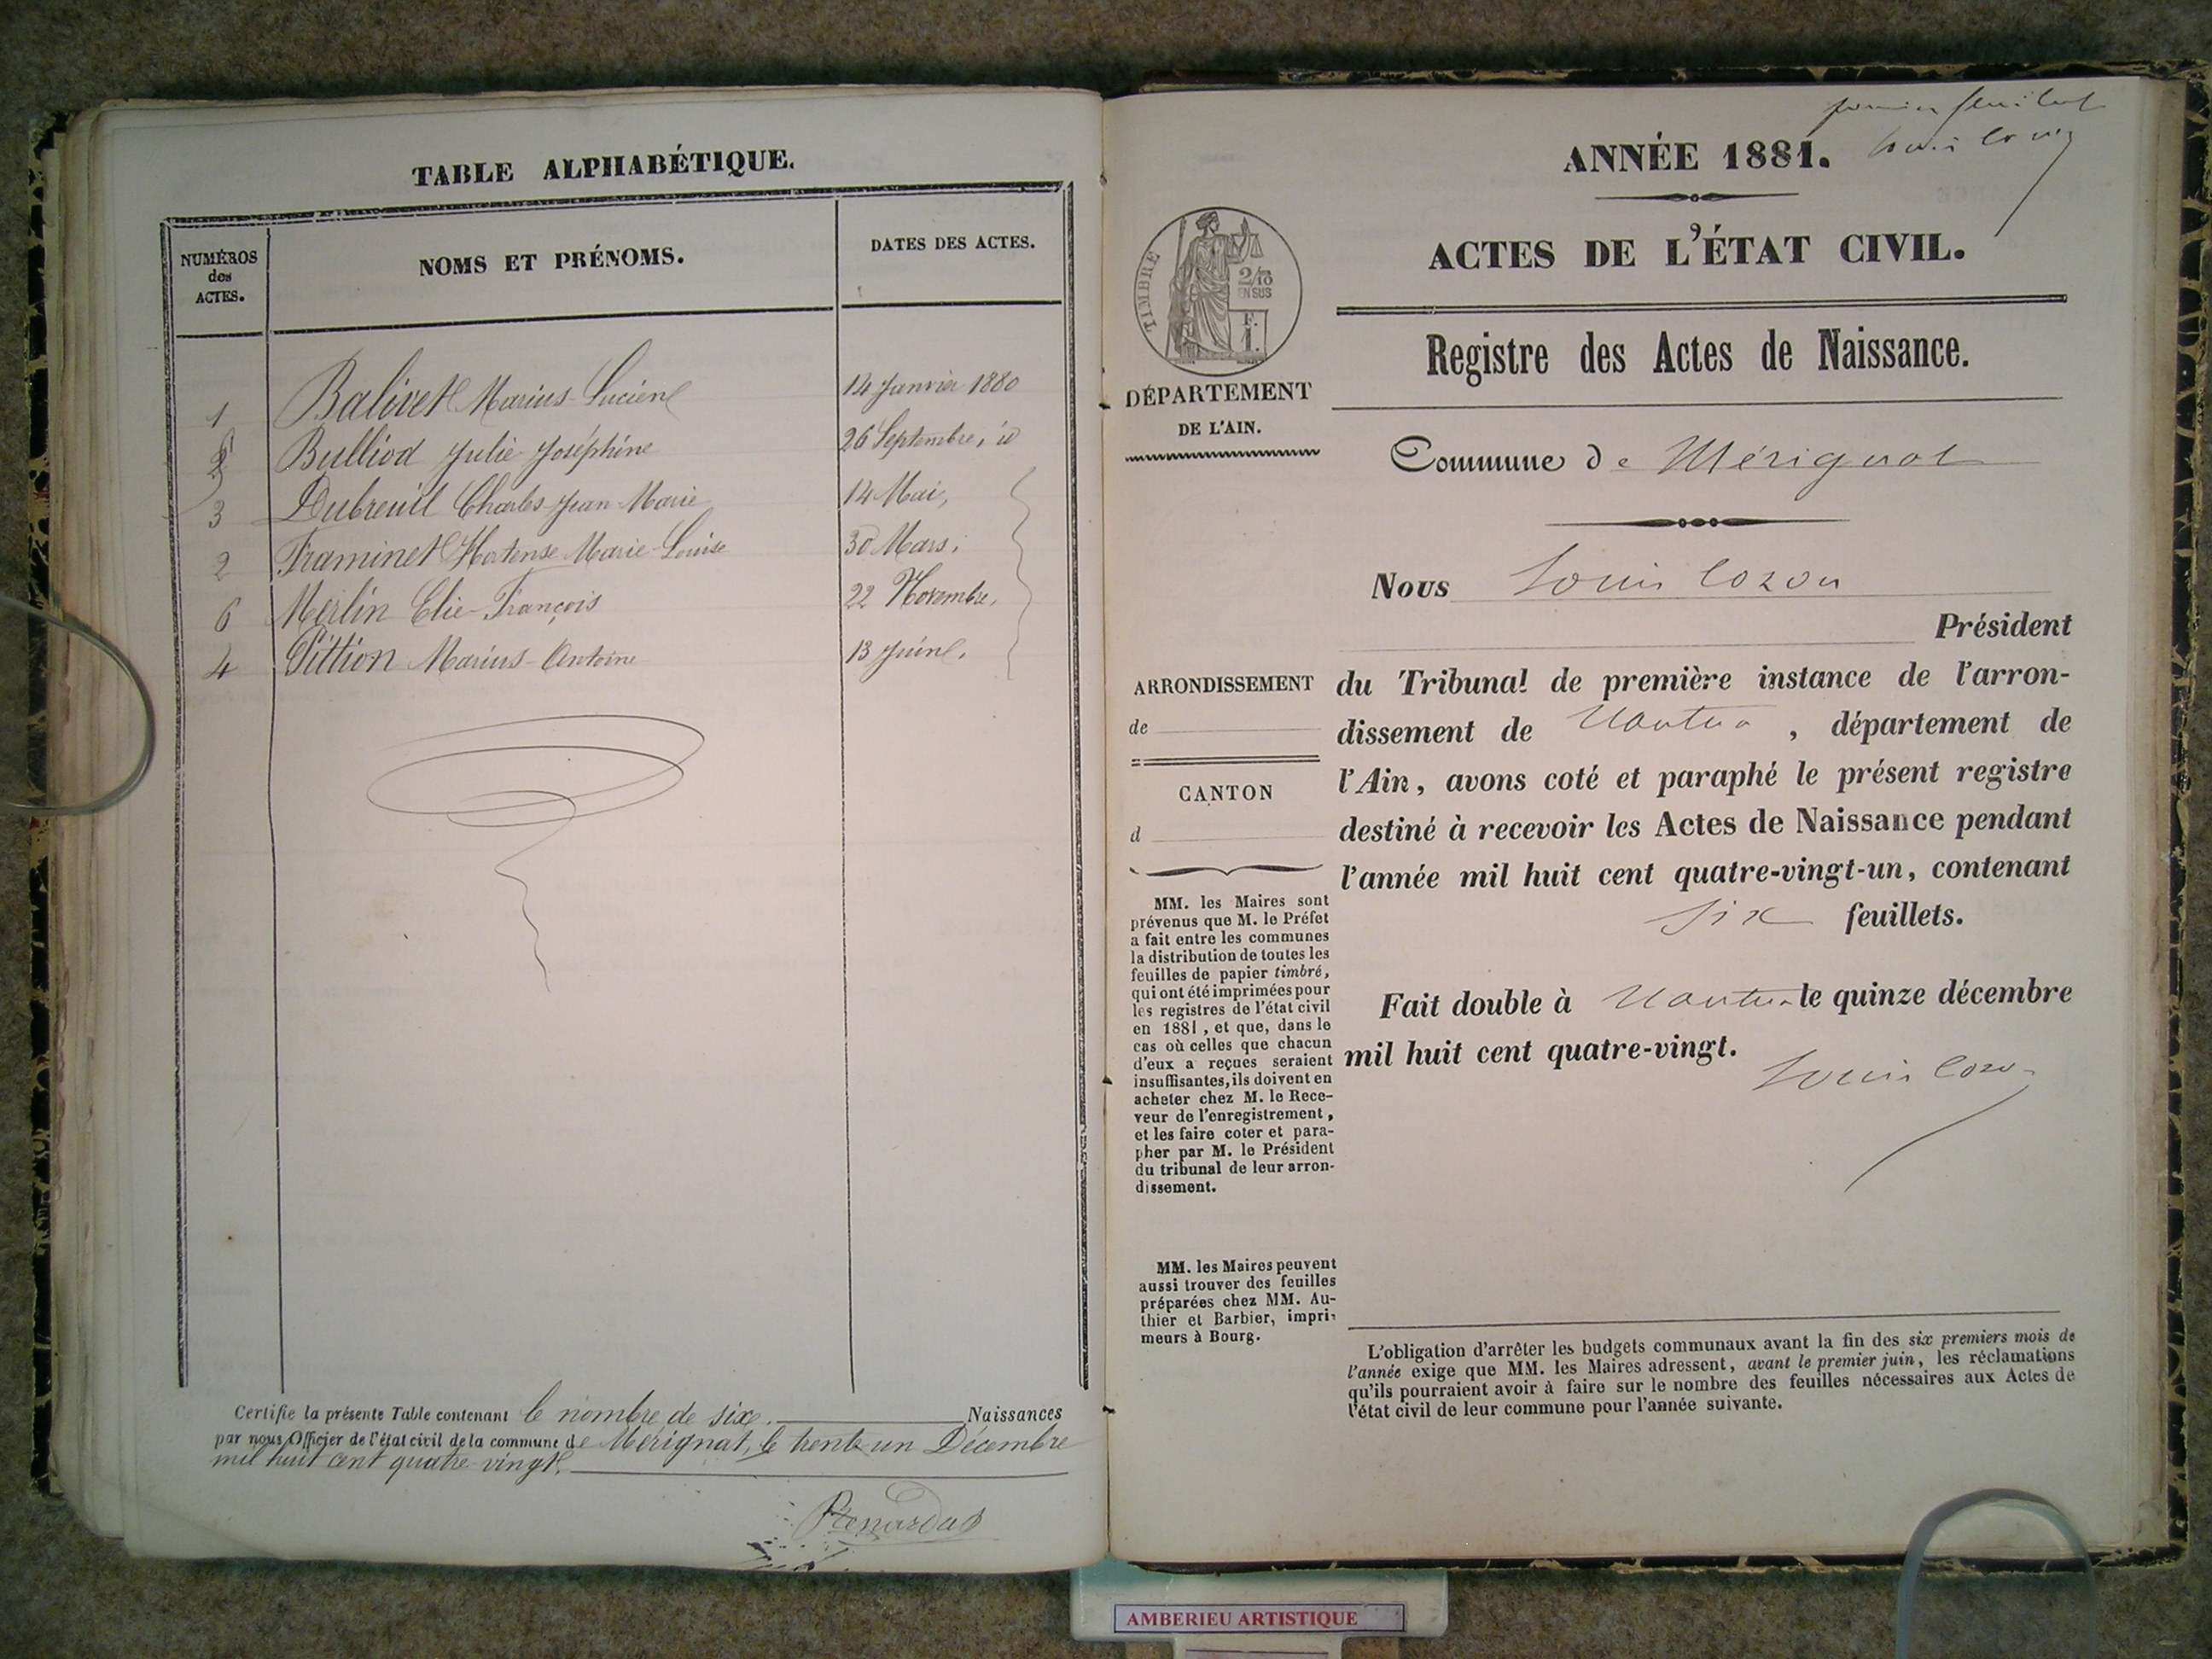 TABLE ALPHABÉTIQUE.
NUMÉROS des ACTES.
NOMS ET PRÉNOMS.
DATES DES ACTES.
1 Balivet Marius Lucien 14 Janvier 1880
5 Bulliod Julie Joséphine 26 Septembre, id
3 Dubreuil Charles Jean Marie 14 Mai,
2 Framinet Hortense Marie Louise 30 Mars,
6 Merlin Elie François 22 Novembre,
4 Pittion Marius Antoine 13 Juin,
Certifie la présente Table contenant le nombre de sixe. Naissances
par nous Officier de l'état civil de la commune de Mérignat, le trente un Décembre
mil huit cent quatre vingt.
premier feuillet
Louis Cozon
ANNÉE 1881.
ACTES DE L'ÉTAT CIVIL.
Registre des Actes de Naissance.
TIMBRE
2/10
EN SUS
F.
1.
DÉPARTEMENT
DE L'AIN.
Commune de Mérignat
Nous Louis Cozon
Président
du Tribunal de première instance de l'arron-
dissement de Nantua, département de
l'Ain, avons coté et paraphé le présent registre
destiné à recevoir les Actes de Naissance pendant
l'année mil huit cent quatre-vingt-un, contenant
six feuillets.
Fait double à Nantua le quinze décembre
mil huit cent quatre-vingt.
Louis Cozon
ARRONDISSEMENT
de
CANTON
d
MM. les Maires sont
prévenus que M. le Préfet
a fait entre les communes
la distribution de toutes les
feuilles de papier timbré,
qui ont été imprimées pour
les registres de l'état civil
en 1881, et que, dans le
cas où celles que chacun
d'eux a reçues seraient
insuffisantes, ils doivent en
acheter chez M. le Rece-
veur de l'enregistrement,
et les faire coter et para-
pher par M. le Président
du tribunal de leur arron-
dissement.
MM. les Maires peuvent
aussi trouver des feuilles
préparées chez MM. Au-
thier et Barbier, impri-
meurs à Bourg.
L'obligation d'arrêter les budgets communaux avant la fin des six premiers mois de
l'année exige que MM. les Maires adressent, avant le premier juin, les réclamations
qu'ils pourraient avoir à faire sur le nombre des feuilles nécessaires aux Actes de
l'état civil de leur commune pour l'année suivante.
AMBERIEU ARTISTIQUE